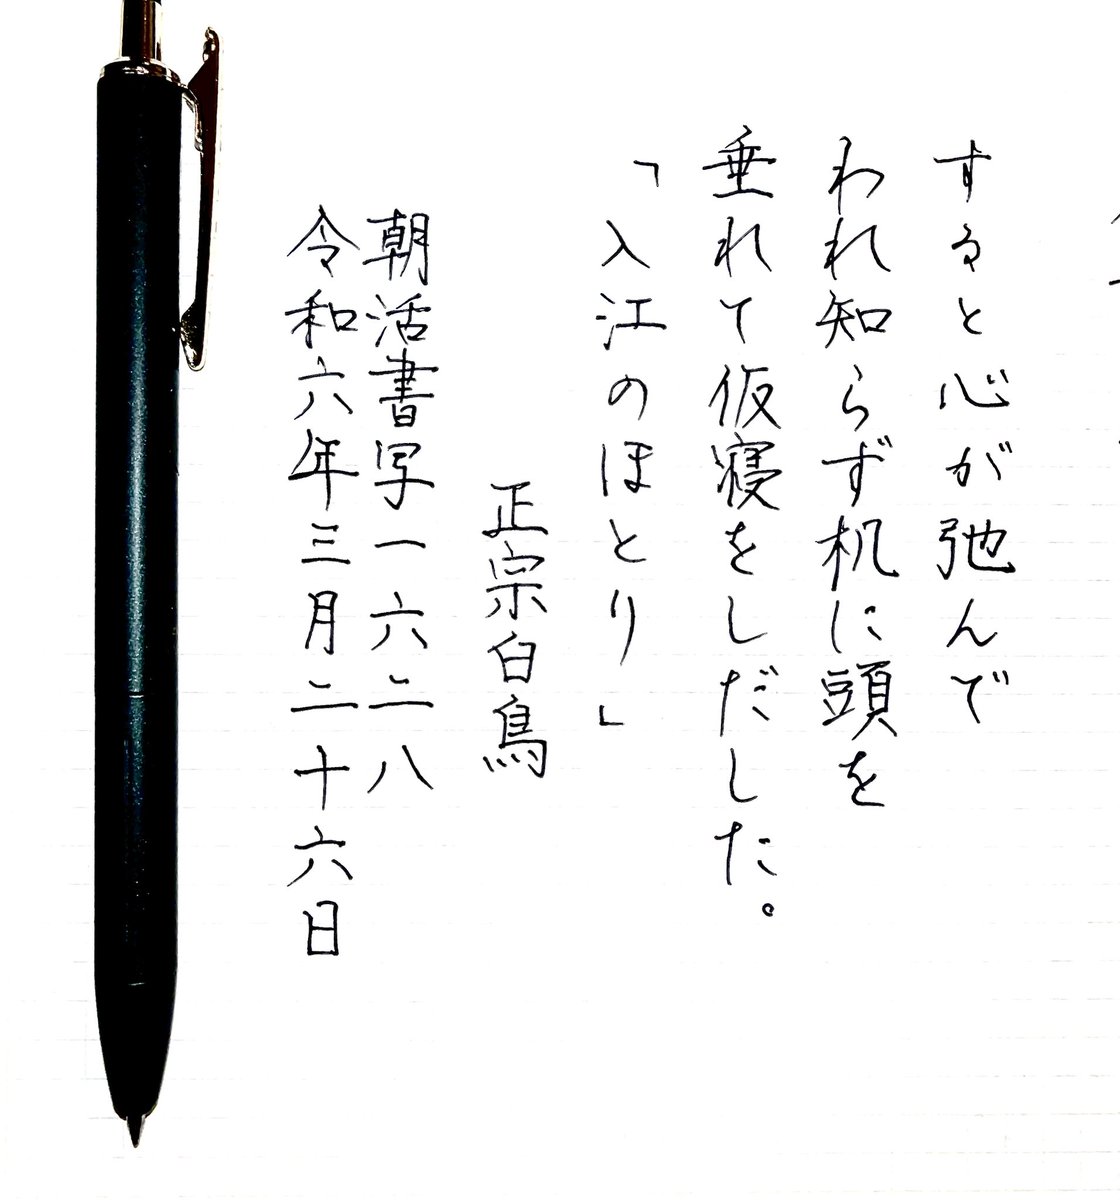 すると心が弛んで
われ知らず机に頭を
垂れて仮寝をしだした。
「入江のほとり」
正宗白鳥
朝活書写一六二八
令和六年三月二十六日